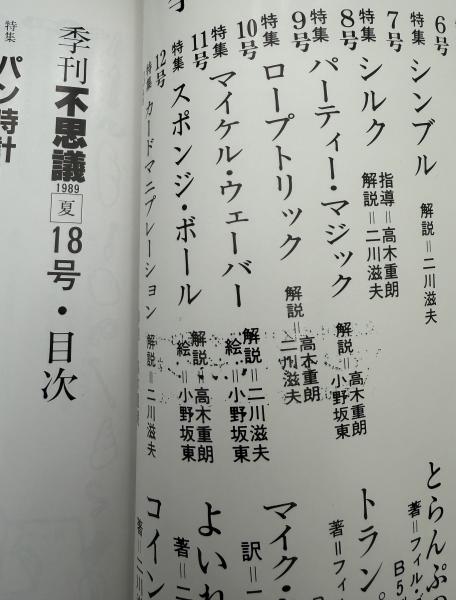 6号
特集 シンブル
解説=二川滋夫
7号
特集 シルク
指導=高木重朗
解説=二川滋夫
8号
特集 パーティー・マジック
解説=高木重朗
小野坂東
9号
特集 ロープトリック
解説=高木重朗
二川滋夫
10号
特集 マイケル・ウェーバー
解説=二川滋夫
絵=小野坂東
11号
特集 スポンジ・ボール
解説=高木重朗
絵=小野坂東
12号
特集 カードマニプレーション
解説=二川滋夫
とらんぷ
著=フィル・
B5
トラン
著=フィ
マイク・
訳=
よいれ
著=二
コイン
著=二川
季刊不思議 1989 夏 18号・目次
特集 パン時計